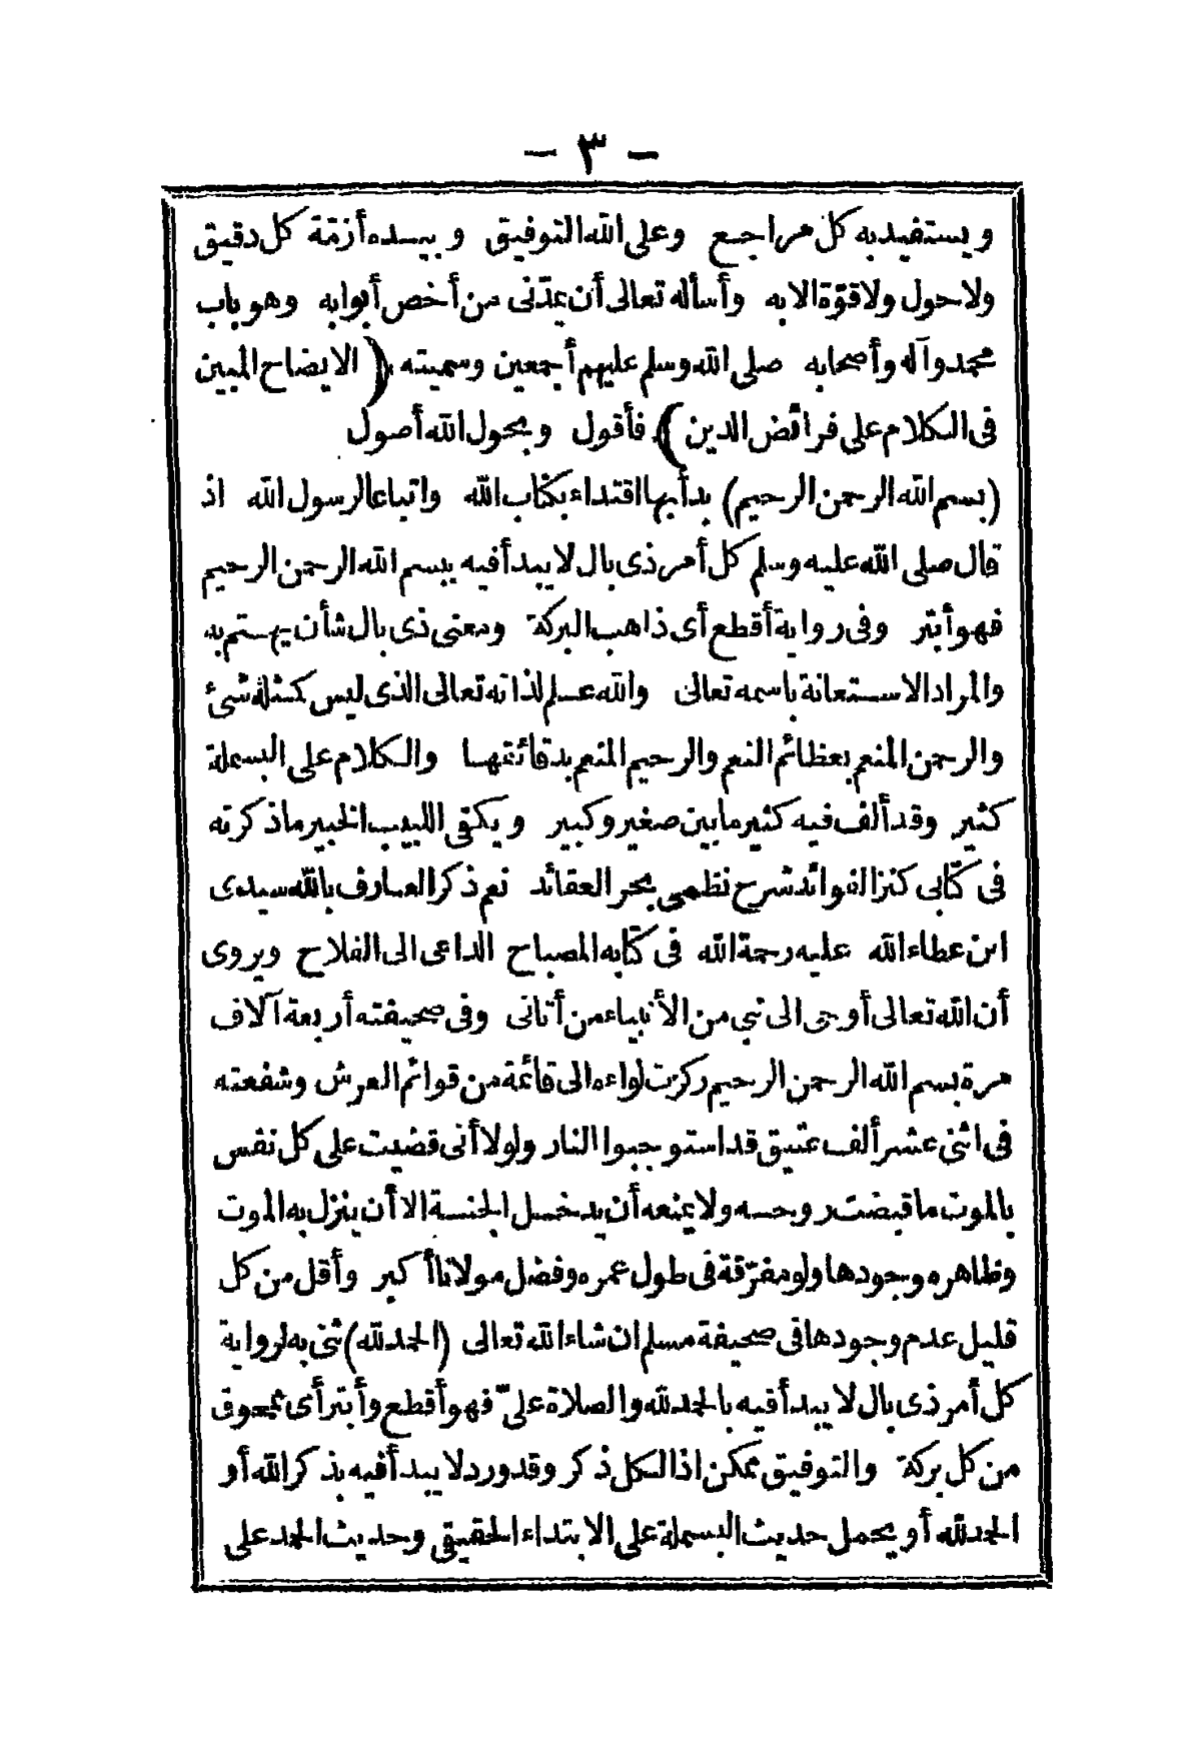 - ٣ -
ويستفيد به كل مراجع وعلى الله التوفيق وبيده أزمّة كل دقيق
ولا حول ولا قوّة الا به وأسأله تعالى أن يمدّنى من أخص أبوابه وهو باب
محمد وآله وأصحابه صلى الله وسلم عليهم أجمعين وسميته (الايضاح المبين
فى الكلام على فرائض الدين) فأقول وبحول الله أصول
(بسم الله الرحمن الرحيم) بدأ بها اقتداء بكتاب الله واتباعا لرسول الله اذ
قال صلى الله عليه وسلم كل أمر ذى بال لا يبدأ فيه ببسم الله الرحمن الرحيم
فهو أبتر وفى رواية أقطع أى ذاهب البركة ومعنى ذى بال شأن يهتم به
والمراد الاستعانة باسمه تعالى والله علم لذاته تعالى الذى ليس كمثله شئ
والرحمن المنعم بعظائم النعم والرحيم المنعم بدقائقها والكلام على البسملة
كثير وقد ألف فيه كثير ما بين صغير وكبير ويكفى اللبيب الخبير ما ذكرته
فى كتابى كنز الفوائد شرح نظمى بحر العقائد نعم ذكر العارف بالله سيدى
ابن عطاء الله عليه رحمة الله فى كتابه المصباح الداعى الى الفلاح ويروى
أن الله تعالى أوحى الى نبي من الأنبياء من أتانى وفى صحيفته أربعة آلاف
مرة بسم الله الرحمن الرحيم ركزت لواءه الى قائمة من قوائم العرش وشفعته
فى اثنى عشر ألف عتيق قد استوجبوا النار ولولا أنى قضيت على كل نفس
بالموت ما قبضت روحه ولا يمنعه أن يدخل الجنة الا أن ينزل به الموت
وظاهره وجودها ولو مفرّقة فى طول عمره وفضل مولانا أكبر وأقل من كل
قليل عدم وجودها فى صحيفة مسلم ان شاء الله تعالى (الحمد لله) ثنى به لرواية
كل أمر ذى بال لا يبدأ فيه بالحمد لله والصلاة علىّ فهو أقطع وأبتر أى ممحوق
من كل بركة والتوفيق ممكن اذ الكل ذكر وقد ورد لا يبدأ فيه بذكر الله أو
الحمد لله أو يحمل حديث البسملة على الابتداء الحقيقى وحديث الحمد على